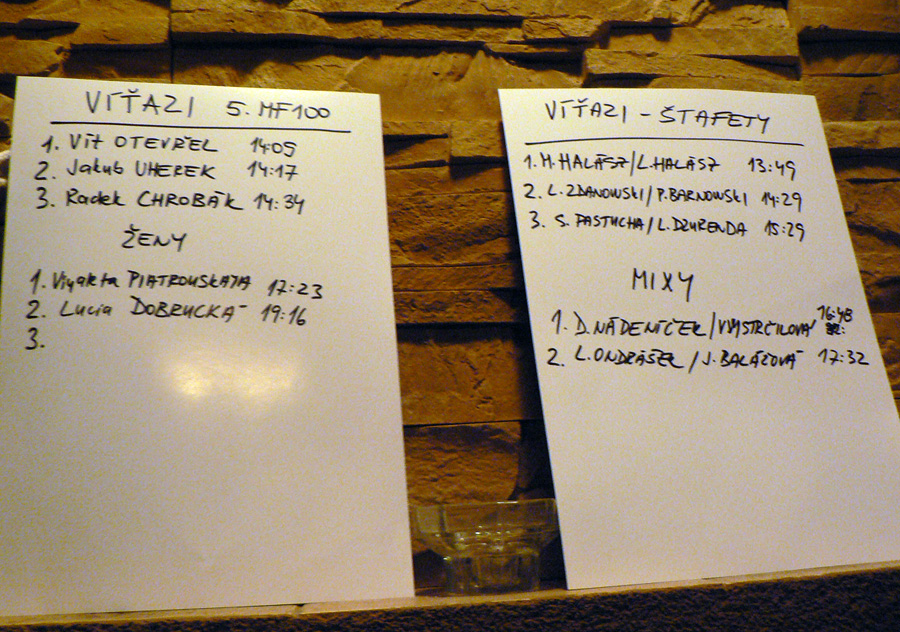 VÍŤAZI 5. MF100
1. Vít OTEVŘEL 14:09
2. Jakub UHEREK 14:17
3. Radek CHROBÁK 14:34
ŽENY
1. Viyaleta PIATROUSKAYA 17:23
2. Lucia DOBRUCKÁ 19:16
3.
VÍŤAZI - ŠTAFETY
1. M. HALÁSZ/L. HALÁSZ 13:49
2. L. ZDANOWSKI/P. BARNOWSKI 14:29
3. S. PASTUCHA/L. DZURENDA 15:29
MIXY
1. D. NÁDENÍČEK/ 16:48
2. L. ONDRÁŠEK/J. BALÁŽOVÁ 17:32